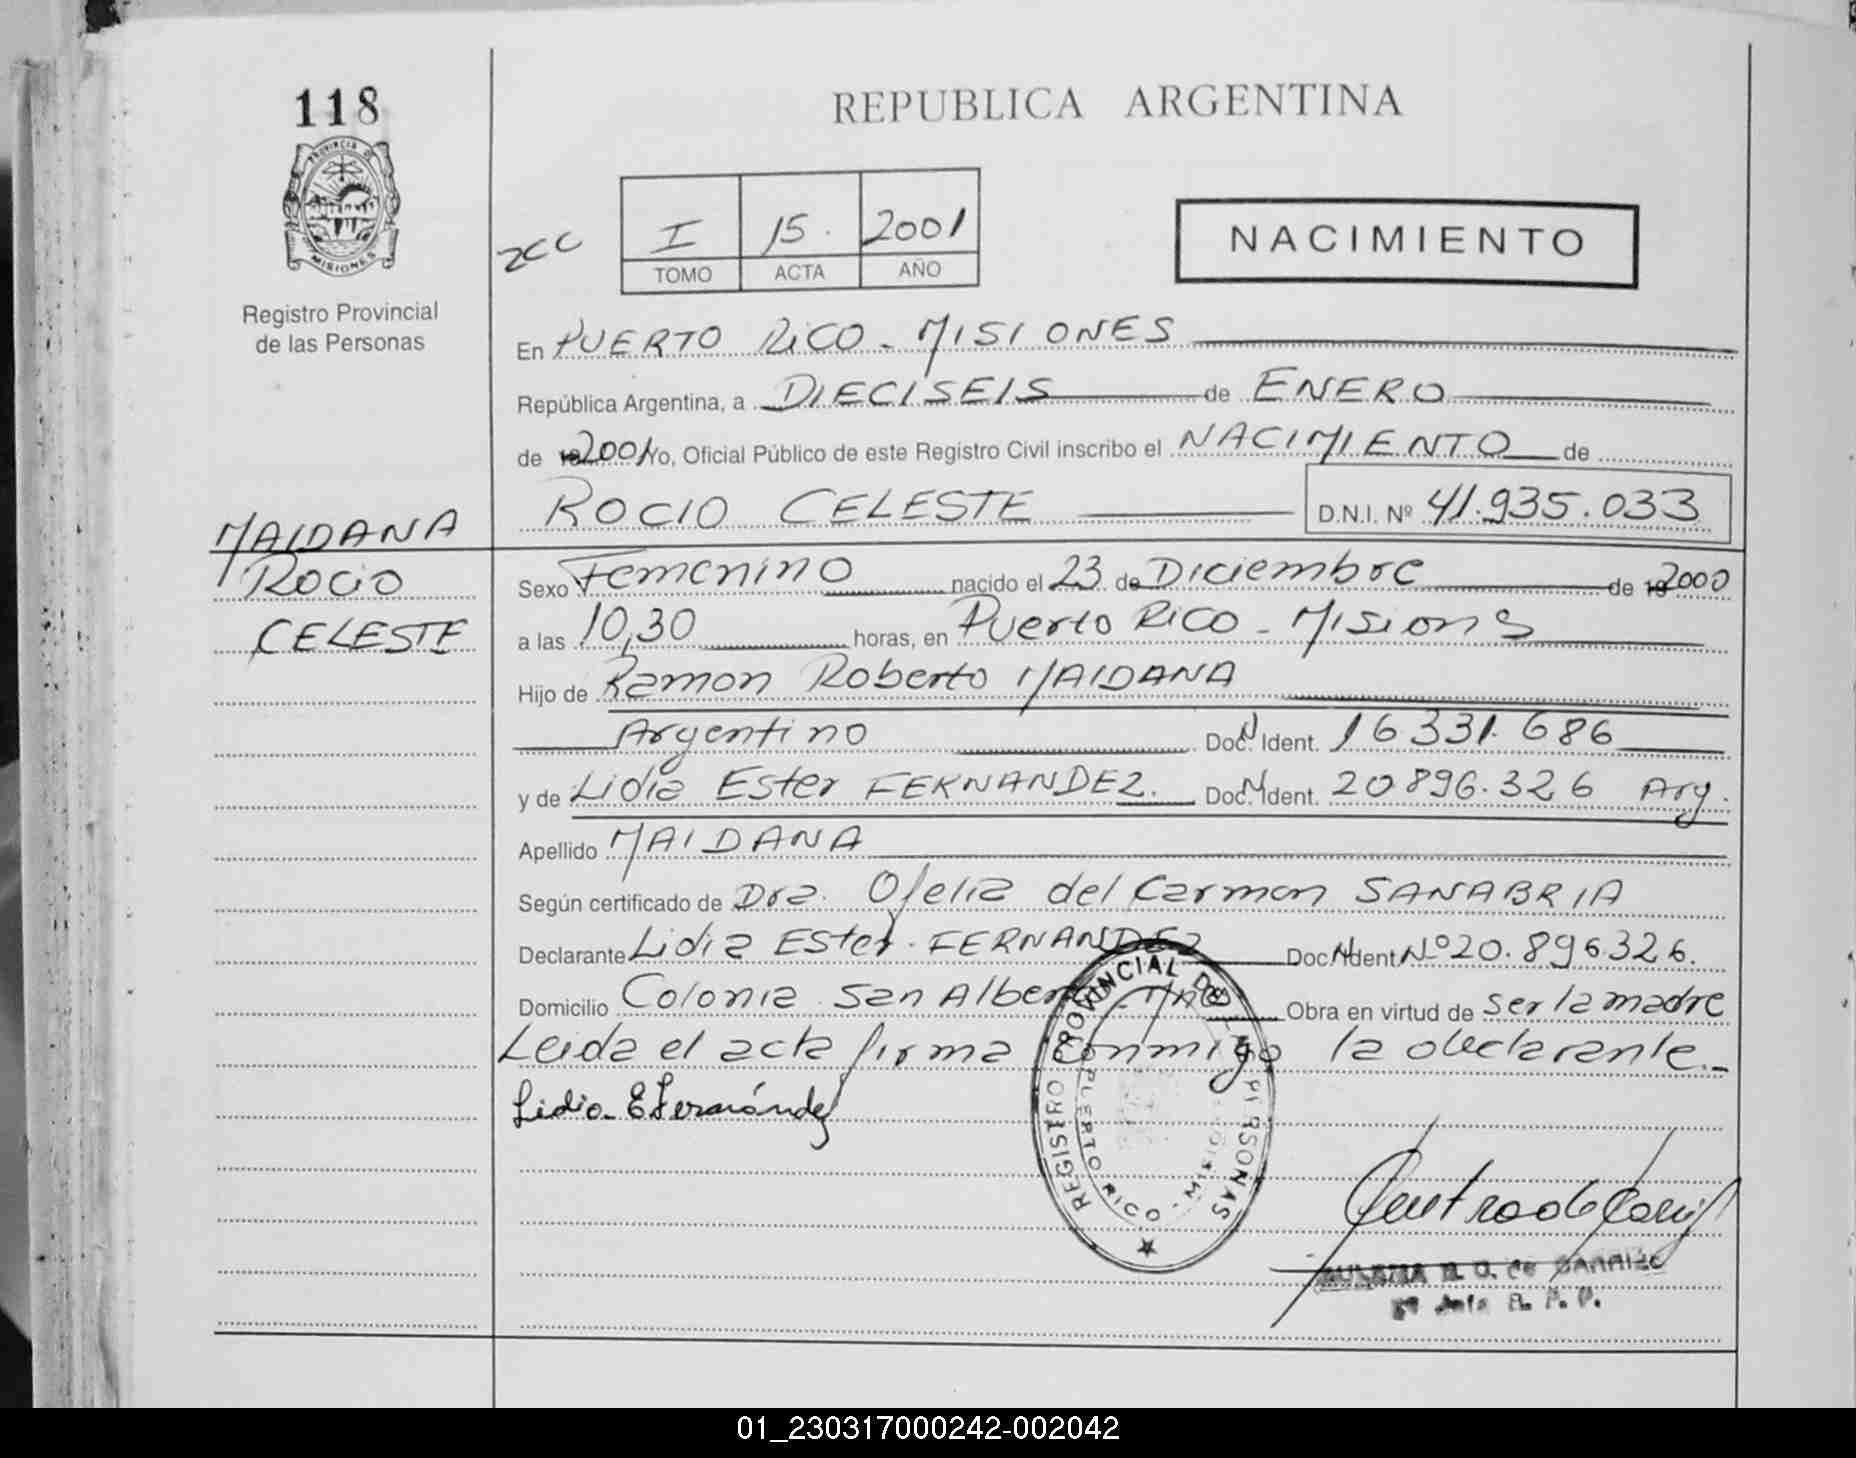 118
PROVINCIA DE
MISIONES
Registro Provincial
de las Personas
REPUBLICA ARGENTINA
I 15. 2001
TOMO ACTA AÑO
NACIMIENTO
En PUERTO RICO - MISIONES
República Argentina, a DIECISEIS de ENERO
de 2001 Yo, Oficial Público de este Registro Civil inscribo el NACIMIENTO de
ROCIO CELESTE D.N.I. Nº 41.935.033
MAIDANA
ROCIO
CELESTE
Sexo Femenino nacido el 23 de Diciembre de 2000
a las 10,30 horas, en Puerto Rico - Misiones
Hijo de Ramon Roberto MAIDANA
Argentino Doc. Ident. 16.331.686
y de Lidia Ester FERNANDEZ. Doc. Ident. 20.896.326 Arg.
Apellido MAIDANA
Según certificado de Dra. Ofelia del Carmen SANABRIA
Declarante Lidia Ester FERNANDEZ Doc. Ident. Nº 20.896.326.
Domicilio Colonia San Alberto Obra en virtud de ser la madre
Leida el acta firma conmigo la declarante.-
Lidia E Fernández
REGISTRO PROVINCIAL DE PERSONAS
PUERTO RICO - MISIONES
01_230317000242-002042